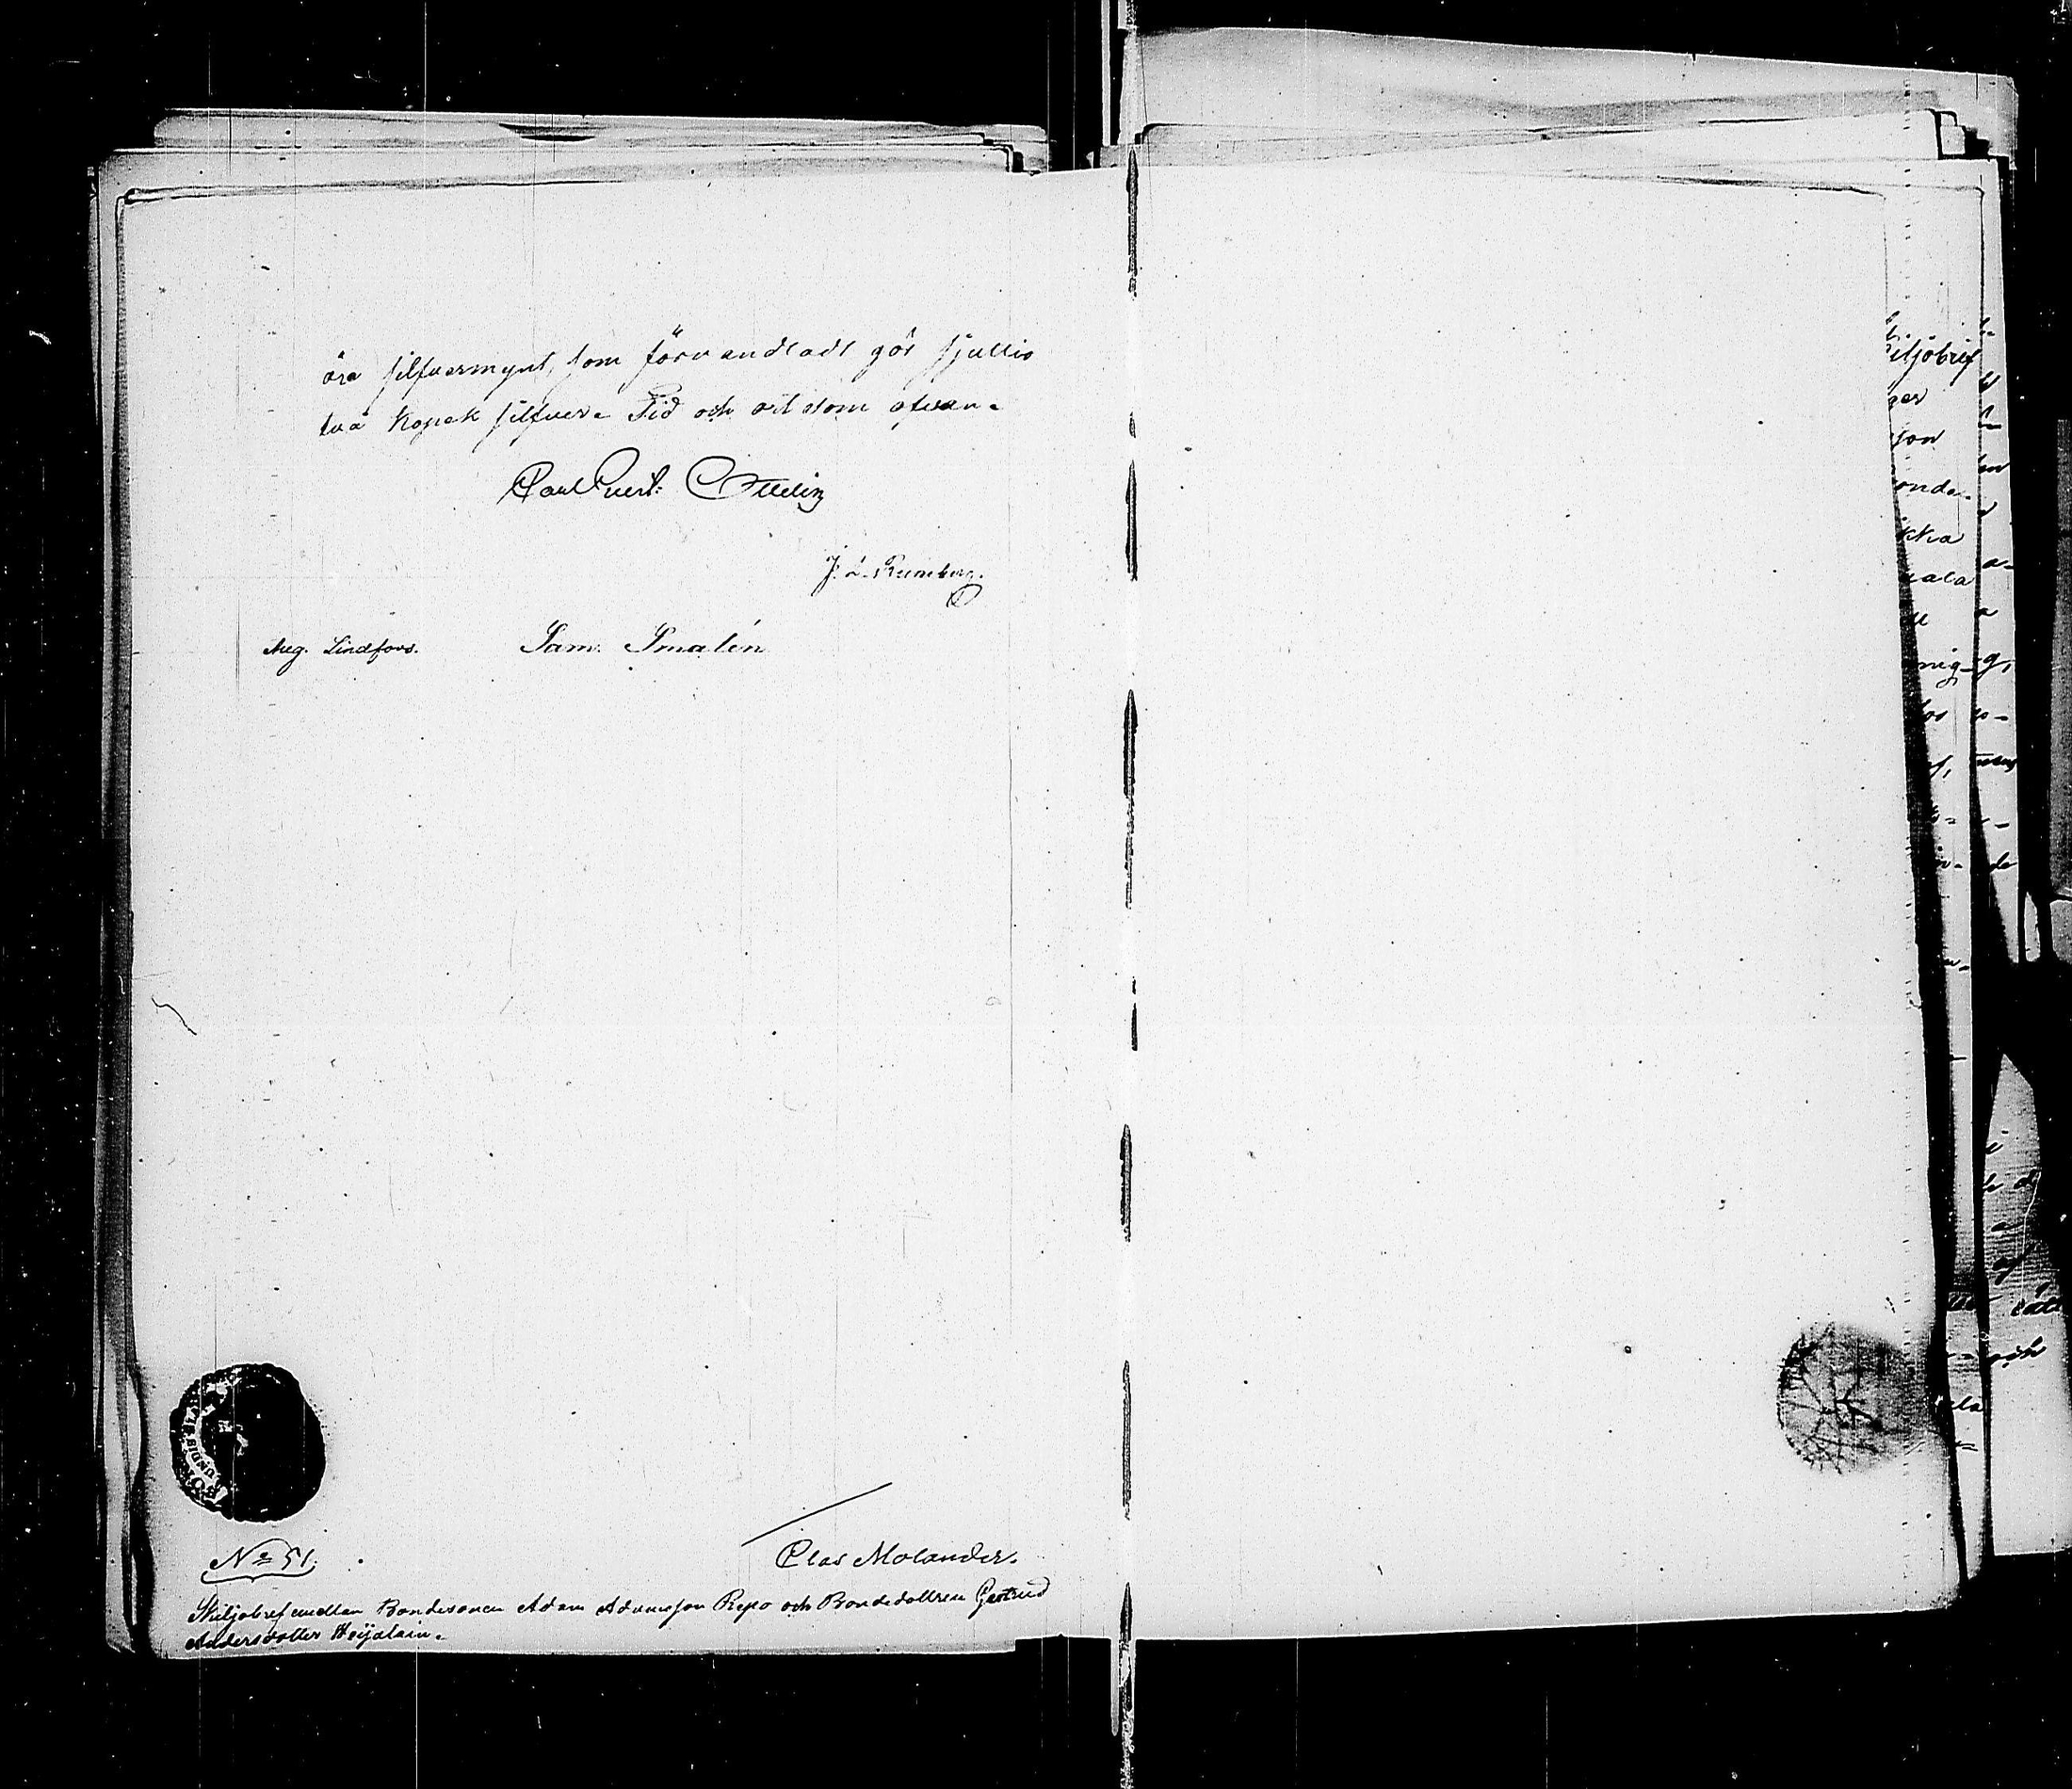 öre silfvermynt, som förvandladt gör sjuttio
två kopek silfver. Tid och ort som ofvan.
Carl Gust. Ottelin
J. L. Runeberg.
Aug. Lindfors. Sam. Smalén
Clas Molander.
No 51.
Skiljobref emellan Bondesonen Adam Adamsson Repo och Bondedottren Gertrud
Andersdotter Heijalain.
iljobref
ger
son
onde-
kka
mig
och